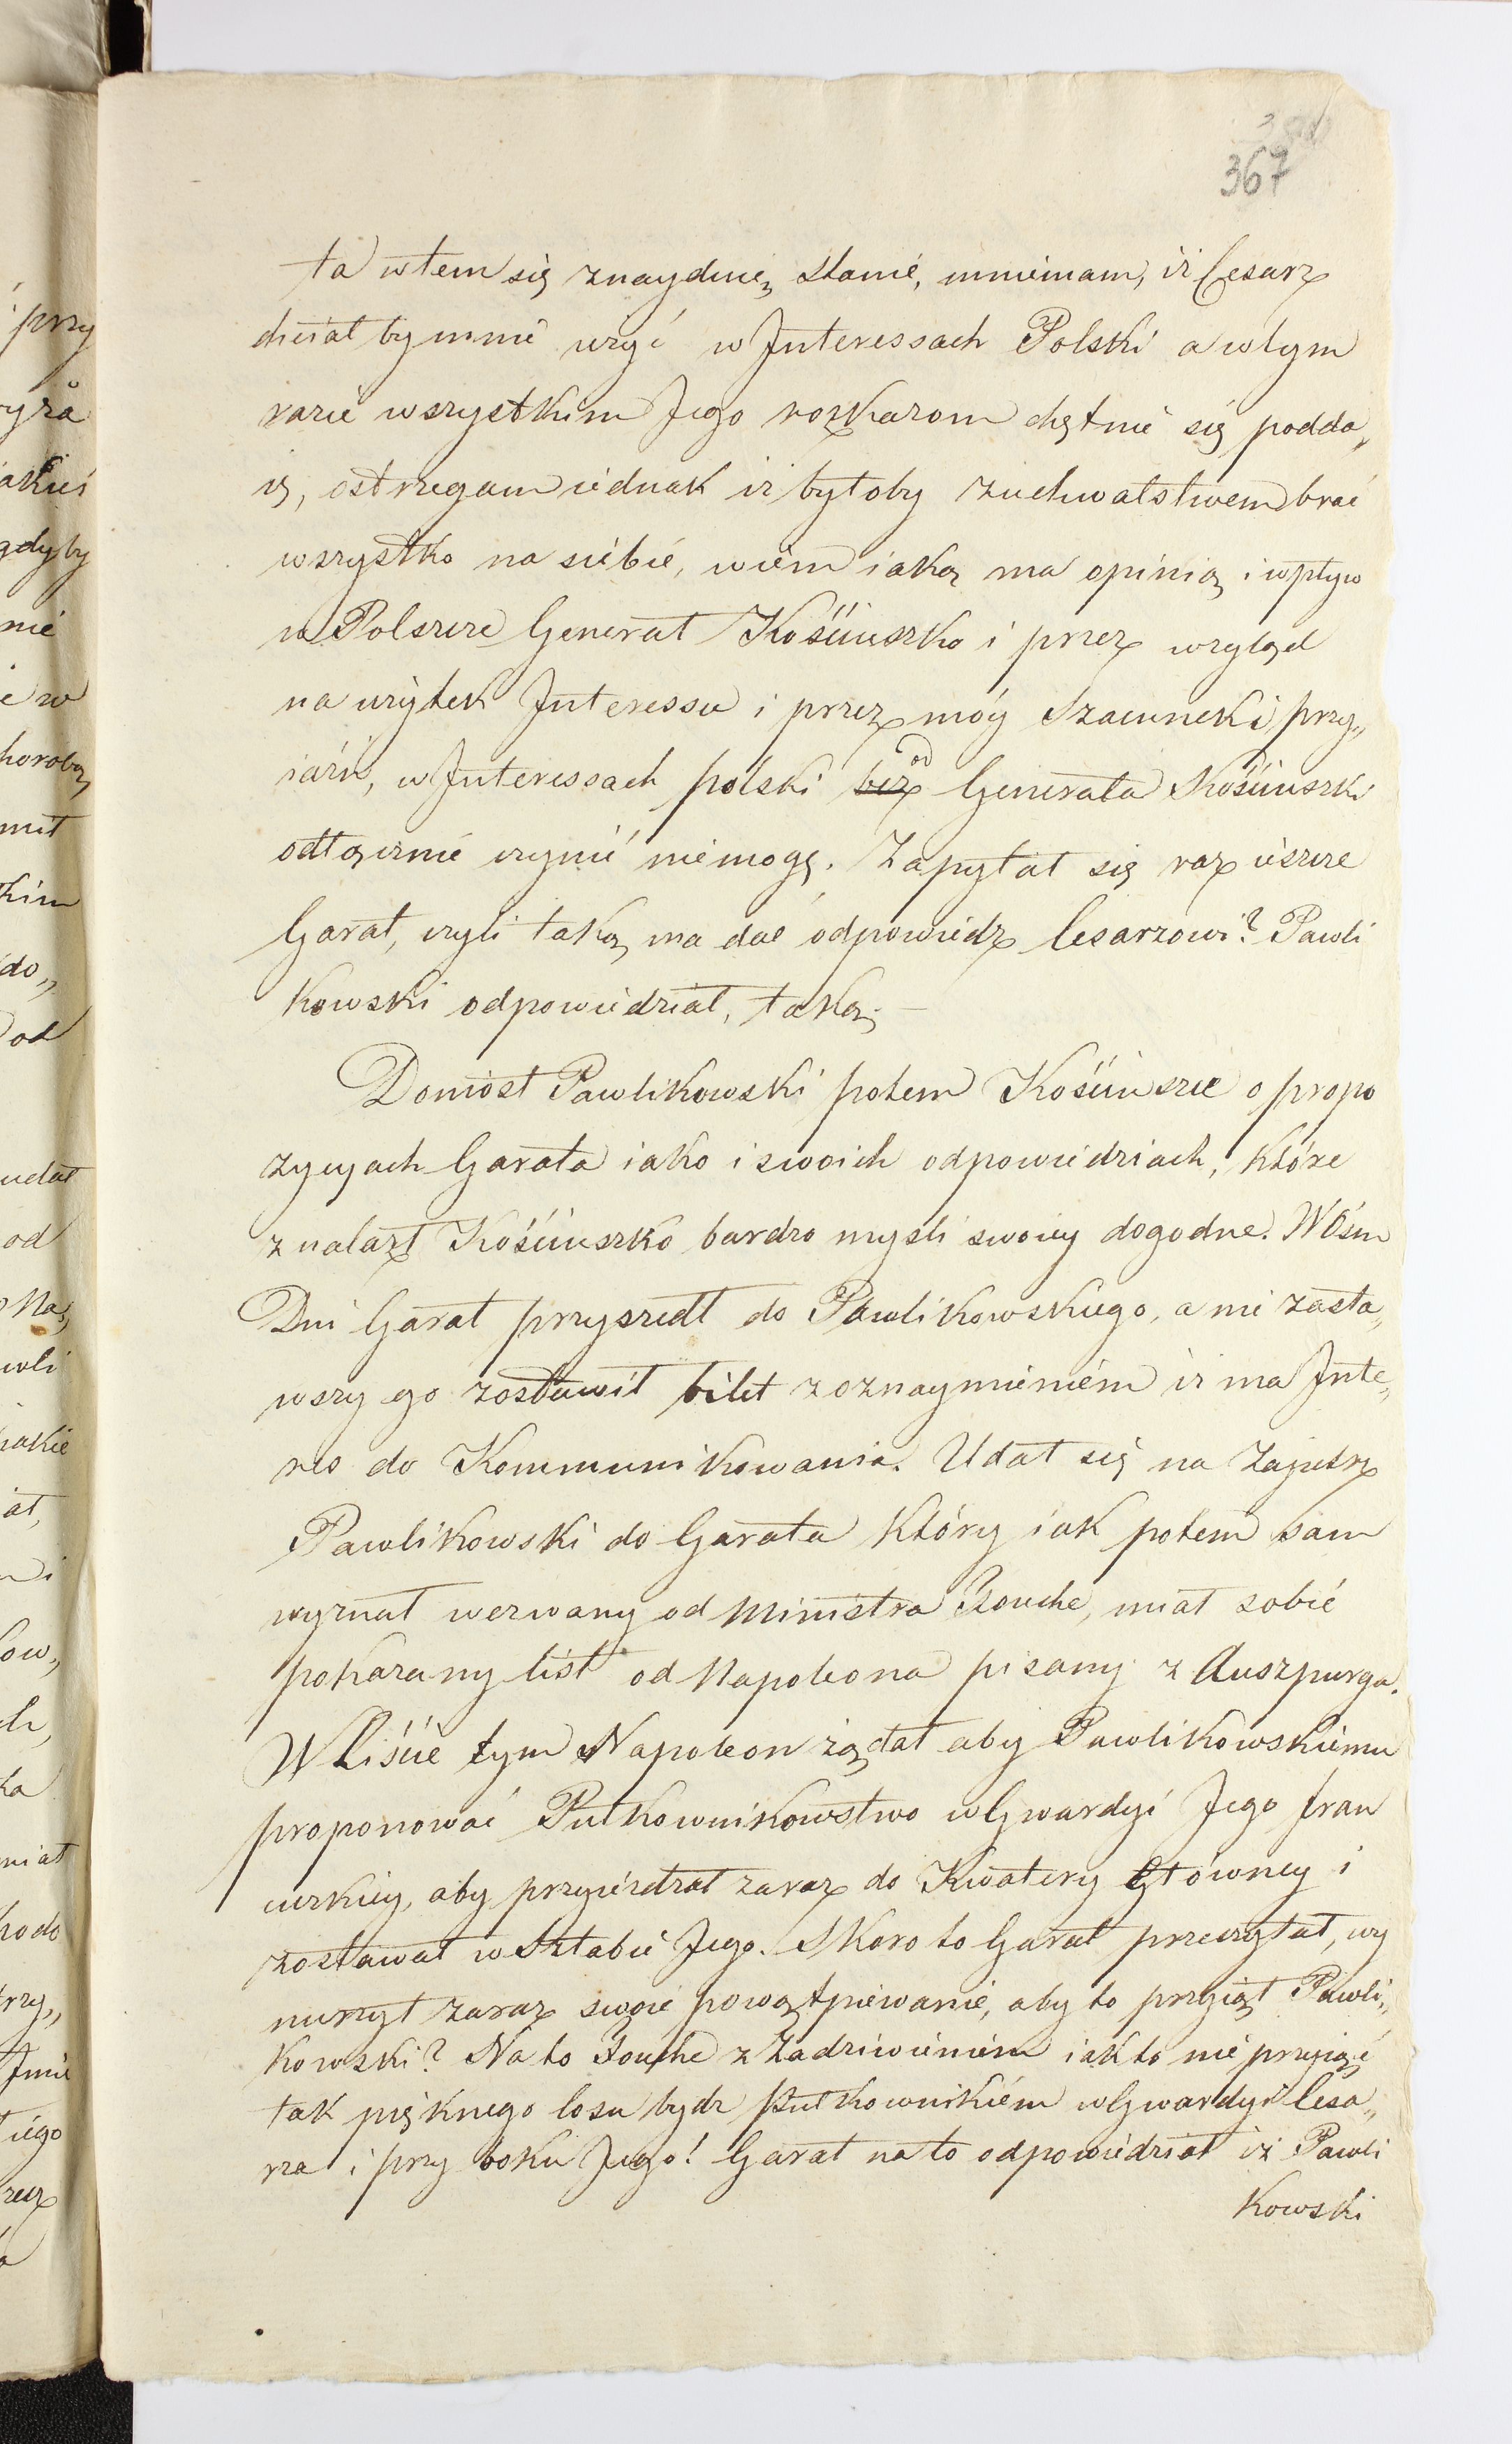 367
ta w tem się znayduię stanie, mniemam, iż Cesarz
chciał by mnie użyć w Interessach Polski a w tym
razie wszystkim Jego rozkazom chętnie się podda„
ię, ostrzegam iednak iż byłoby zuchwalstwem brać
wszystko na siebie, wiem iaką ma opinią i wpływ
w Polszcze Generał Kościuszko i przez wzgląd
na użytek Interessu i przez móy Szacunek i przy„
iaźń, w Interessach polski bez od Generała Kościuszki
odłącznie czynić nie mogę. Zapytał się raz ieszcze
Garat, czyli taką ma dać odpowiedz Cesarzowi? Pawli
kowski odpowiedział, taką. —
Doniósł Pawlikowski potem Kościuszce o propo
zycyach Garata iako i swoich odpowiedziach, które
znalazł Kościuszko bardzo myśli swoiey dogodne. W Ośm
Dni Garat przyszedł do Pawlikowskiego, a nie zasta„
wszy go zostawił bilet z oznaymieniem iż ma Inte„
res do Kommunikowania. Udał się na zajutrz
Pawlikowski do Garata który iak potem sam
wyznał wezwany od Ministra Fouche, miał sobie
pokazany list od Napoleona pisany z Auszpurga.
W Liście tym Napoleon żądał aby Pawlikowskiemu
proponować Pułkownikowstwo w Gwardyi Jego fran
cuzkiey, aby przyieżdżał zaraz do Kwatery Główney i
zostawał w Sztabie Jego. Skoro to Garat przeczytał, wy
nurzył zaraz swoie powątpiewanie, aby to przyiął Pawli„
kowski? Na to Fouche z zadziwieniem iak to nie przyiąć
tak pięknego losu bydź Pułkownikiem w Gwardyi Cesa„
rza i przy boku Jego! Garat na to odpowiedział iż Pawli
kowski